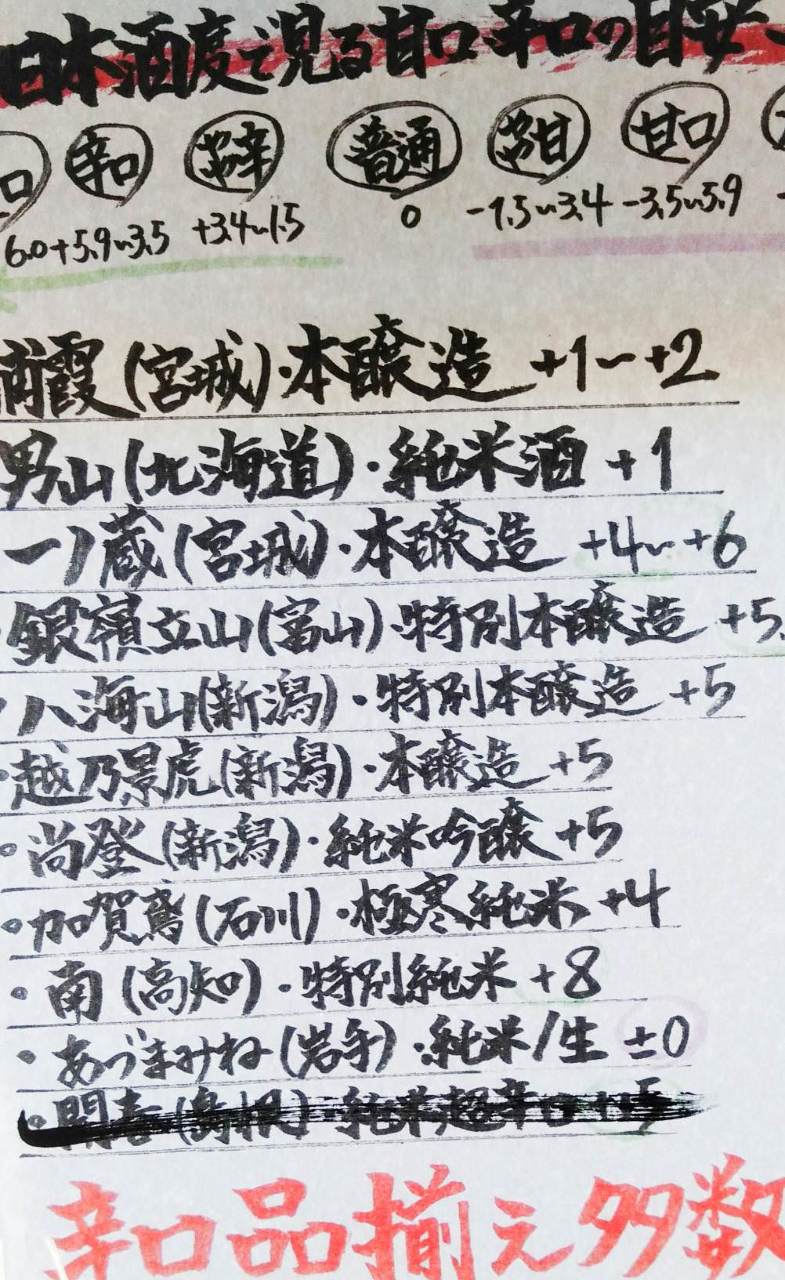 日本酒度で見る甘口辛口の目安
口 辛口 やや辛 普通 やや甘 甘口
6.0 +5.9〜3.5 +3.4〜1.5 0 -1.5〜3.4 -3.5〜5.9 -
浦霞(宮城)・本醸造 +1〜+2
男山(北海道)・純米酒 +1
一ノ蔵(宮城)・本醸造 +4〜+6
・銀嶺立山(富山)・特別本醸造 +5.
・八海山(新潟)・特別本醸造 +5
・越乃景虎(新潟)・本醸造 +5
・尚登(新潟)・純米吟醸 +5
・加賀鳶(石川)・極寒純米 +4
・南(高知)・特別純米 +8
・あづまみね(岩手)・純米/生 ±0
辛口品揃え多数